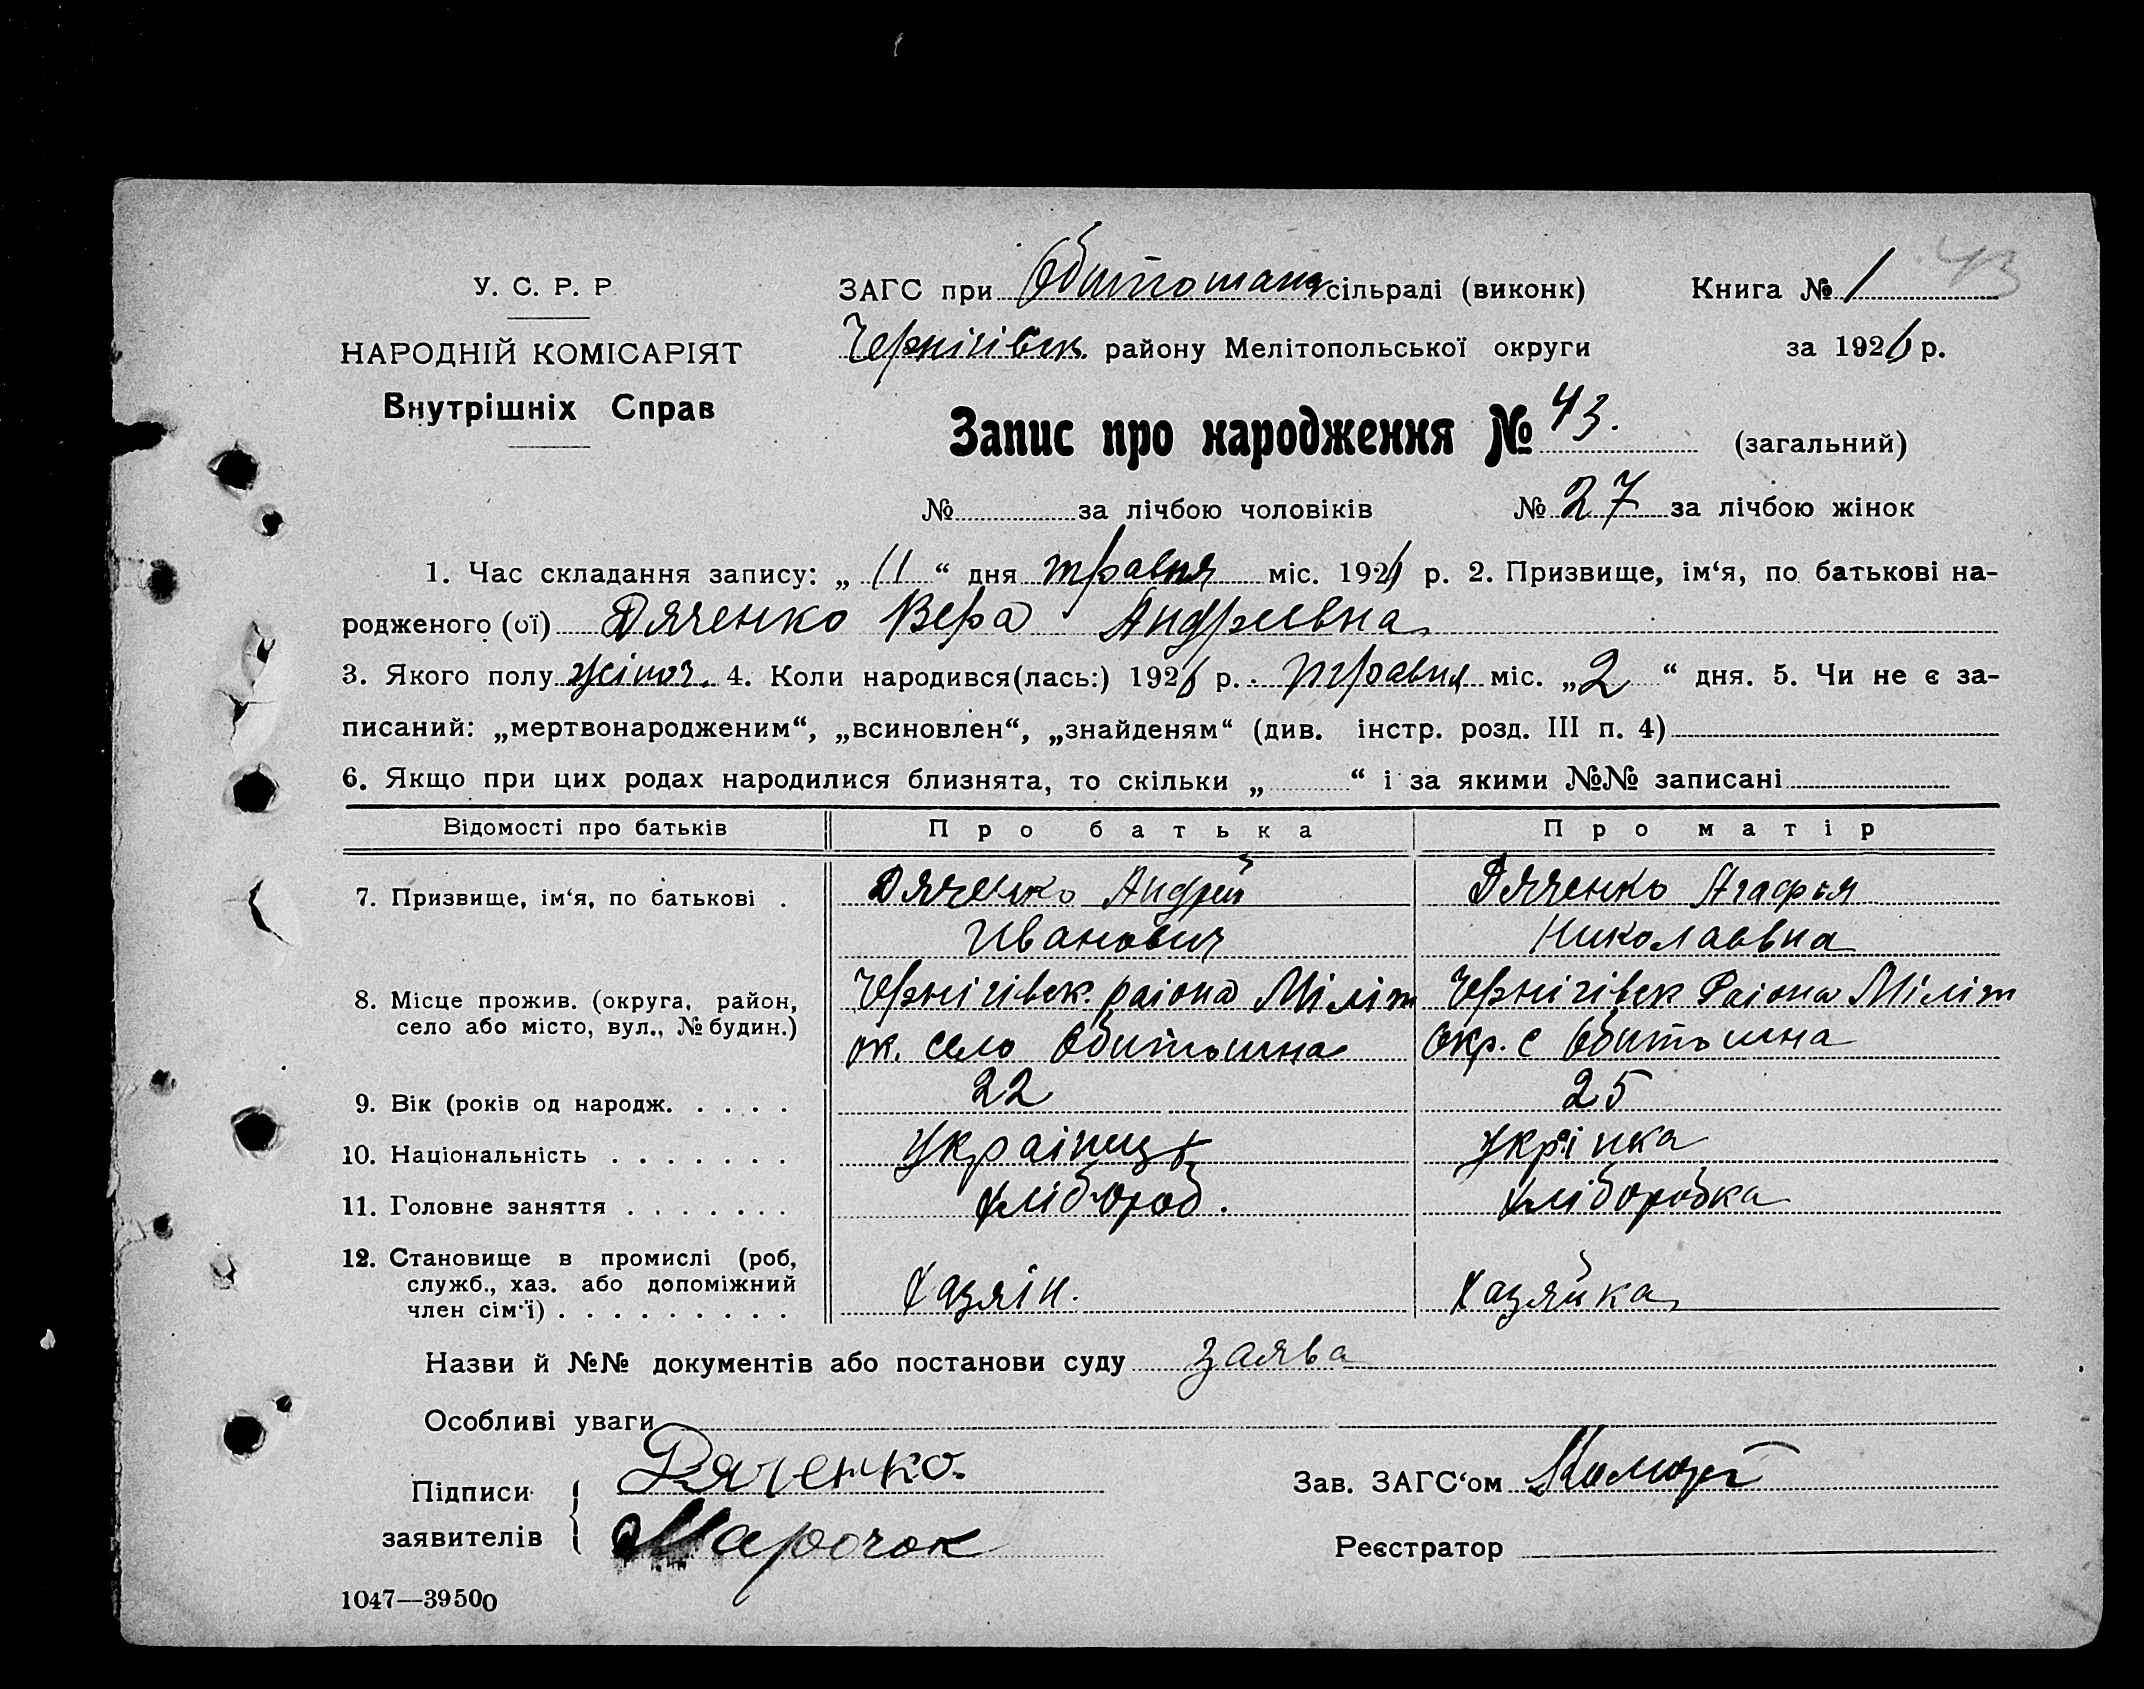 43
У. С. Р. Р.
НАРОДНІЙ КОМІСАРІЯТ
Внутрішніх Справ
ЗАГС при Обитошна сільраді (виконк)
Книга № 1
Чернігівск. району Мелітопольської округи
за 1926 р.
Запис про народження № 43. (загальний)
№ за лічбою чоловіків № 27 за лічбою жінок
1. Час складання запису: „ 11 “ дня травня міс. 1926 р. 2. Призвище, ім‘я, по батькові на-
родженого (ої) Дяченко Вера Андреевна
3. Якого полу жіноч. 4. Коли народився(лась:) 1926 р. травня міс. „ 2 “ дня. 5. Чи не є за-
писаний: „мертвонародженим“, „всиновлен“, „знайденям“ (див. інстр. розд. III п. 4)
6. Якщо при цих родах народилися близнята, то скільки „ “ і за якими №№ записані
Відомості про батьків Про батька Про матір
7. Призвище, ім‘я, по батькові . Дяченко Андрей Дяченко Агафья
Иванович Николаевна
8. Місце прожив. (округа, район, Чернігівск. раіона Міліт Чернігівск Раіона Міліт
село або місто, вул., № будин.) ок. село Обитошна Окр. с Обитошна
9. Вік (років од народж. . . . . 22 25
10. Національність . . . . . . . Украінець Укрінка
11. Головне заняття . . . . . . . хлібороб. хліборобка
12. Становище в промислі (роб,
служб., хаз. або допоміжний
член сім‘ї) . . . . . . . . . Хазяін. Хазяйка
Назви й №№ документів або постанови суду заява
Особливі уваги
Підписи
заявителів
Дяченко.
Марочок
Зав. ЗАГС‘ом
Реєстратор
1047—39500